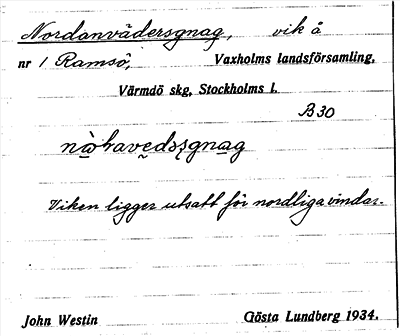 Nordanvädersgnag, vik å
nr 1 Ramsö, Vaxholms landsförsamling,
Värmdö skg, Stockholms l.
B30
Viken ligger utsatt för nordliga vindar.
John Westin Gösta Lundberg 1934.